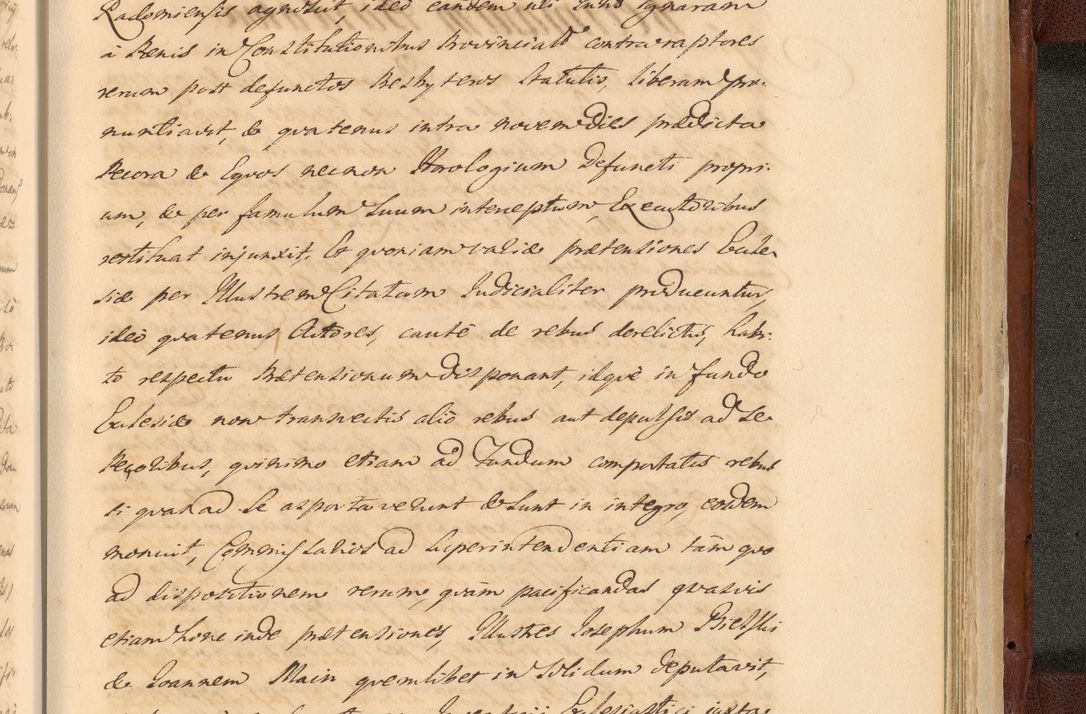 Radomiensis agnovit, ideo eandem uti cujus ignaram
à Poenis in Constitutionibus Provinciali contra raptores
rerum post defunctos Presbyteros statutis, liberam pro-
nuntiavit, & quatenus intra novem dies prædicta
Pecora & Equos necnon Horologium Defuncti propri-
um, & per famulum suum interceptum, Executoribus
restituat injunxit. Et quoniam validæ prætensiones Eccle-
siæ per Illustrem Citatum Judicialiter producuntur,
ideò quatenus Actores, cautè de rebus derelictis, habi-
to respectu Prætensionum disponant, idque in fundo
Ecclesiæ non transvectis aliò rebus aut depulsis ad se
Pecoribus, quinimo etiam ad Fundum comportatis rebus
si quas ad se asportaverunt & sunt in integro, eosdem
monuit, Commissarios ad superintendentiam tàm quo
ad dispositionem rerum, quàm pacificandas quasvis
etiam hinc inde prætensiones, Illustres Josephum Bielski
& Joannem Main quemlibet in solidum deputavit,
Inventarii Ecclesiastici juxta